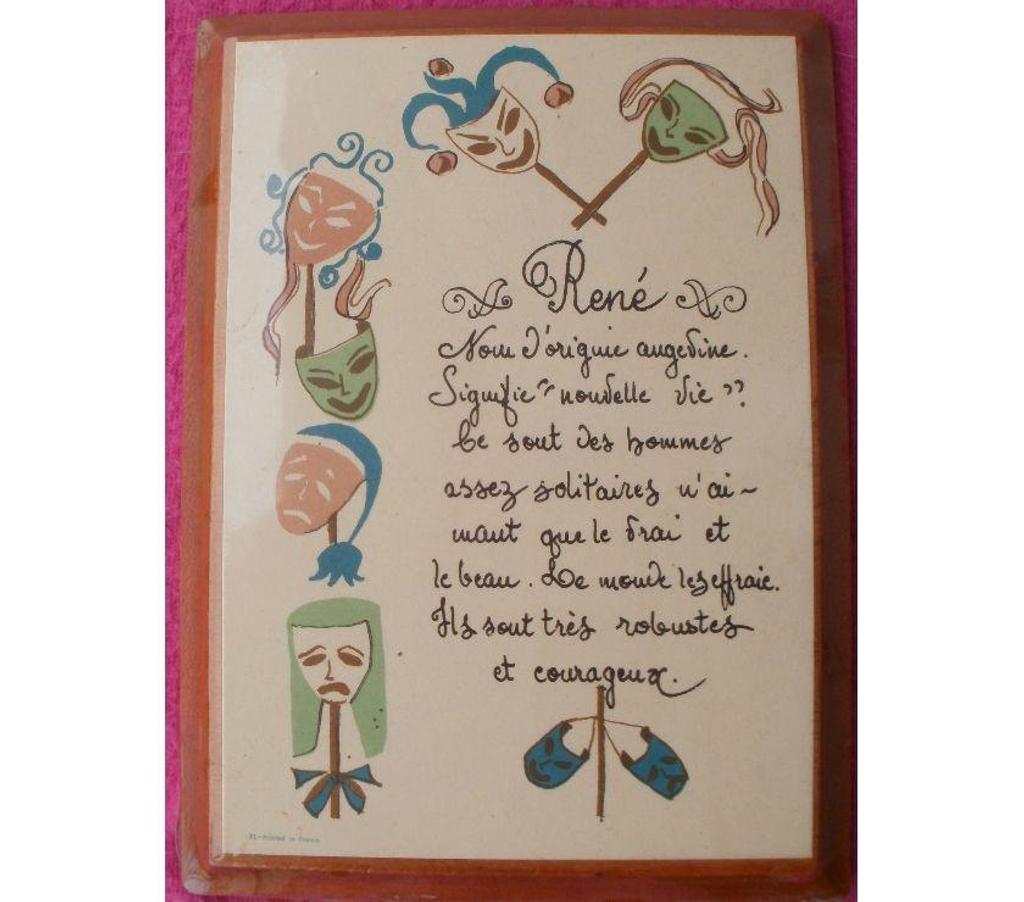 René
Nom d'origine angevine.
Signifie "nouvelle vie"?
Ce sont des hommes
assez solitaires n'ai-
mant que le vrai et
le beau. Le monde les effraie.
Ils sont très robustes
et courageux.
Printed in France